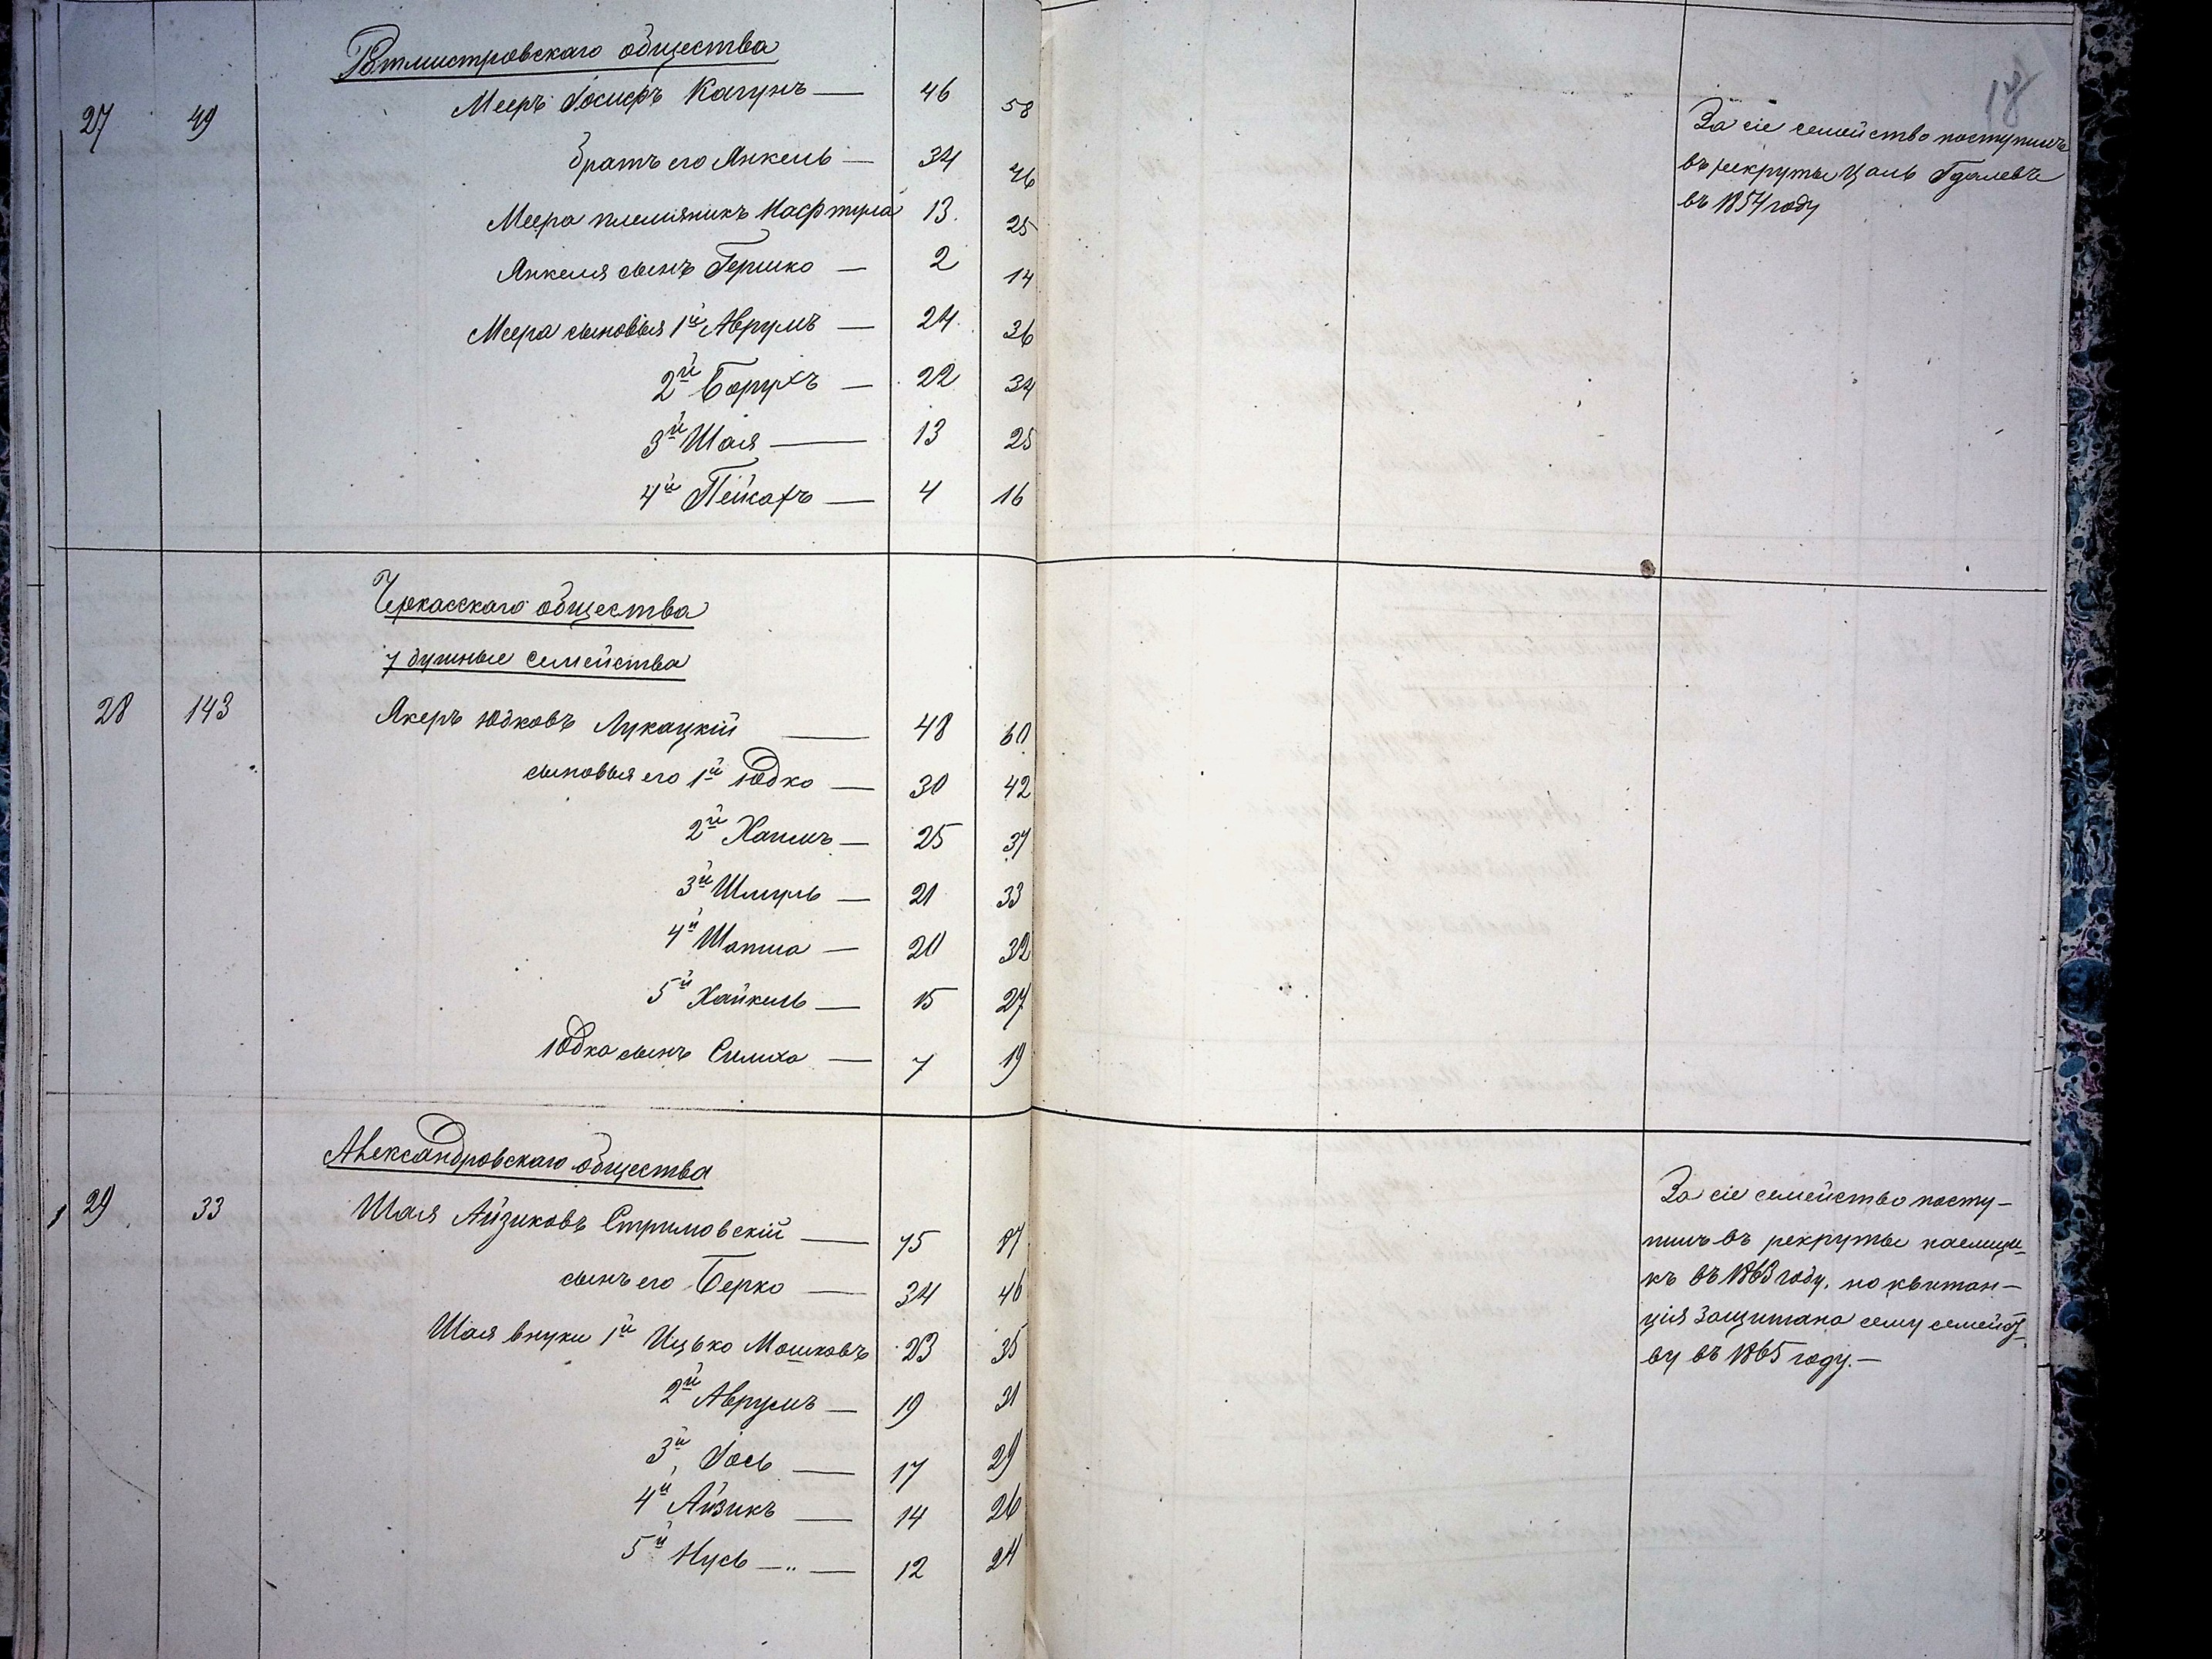 18
Ротмистровскаго общества
27 49 Мееръ Іосифъ Кагунъ — 46 58
братъ его Янкель — 34 46
Меера племяникъ Нафтула 13. 25
Янкеля сынъ Гершко — 2 14
Меера сыновья 1й Аврумъ — 24 36
2й Борухъ — 22 34
3й Шая — 13 25
4й Пейсахъ — 4 16
За сіе семейство поступилъ
въ рекруты Цаль Гдалевъ
въ 1854 году
Черкасскаго общества
7 душные семейства
28 143 Янкеръ Юдковъ Лукацкій — 48 60
сыновья его 1й Юдко — 30 42
2й Хаимъ — 25 37
3й Шмуль — 21 33
4й — 20 32
5й Хайкель — 15 27
Юдка сынъ Симха — 7 19
Александровскаго общества
29 33 Шая Айзиковъ Стримовскій — 75 87
сынъ его Берко — 34 46
Шая внуки 1й Ицько Мошковъ 23 35
2й Аврумъ — 19 31
3й Іось — 17 29
4й Айзикъ — 14 26
5й Нусь — 12 24
За сіе семейство посту-
пилъ въ рекруты наемщи-
къ въ 1863 году, но квитан-
ція защитана сему семейст-
ву въ 1865 году.—